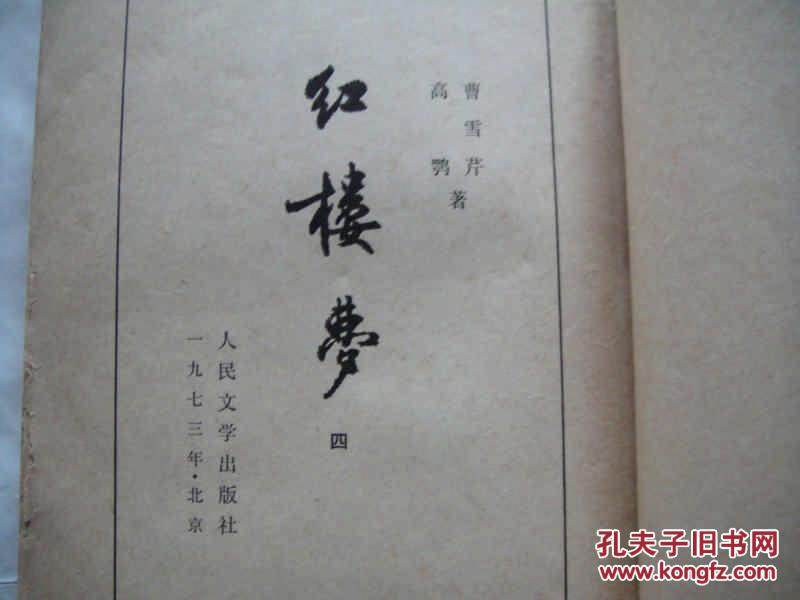 曹雪芹
高鹗
著
红楼梦
四
人民文学出版社
一九七三年·北京
孔夫子旧书网
www.kongfz.com